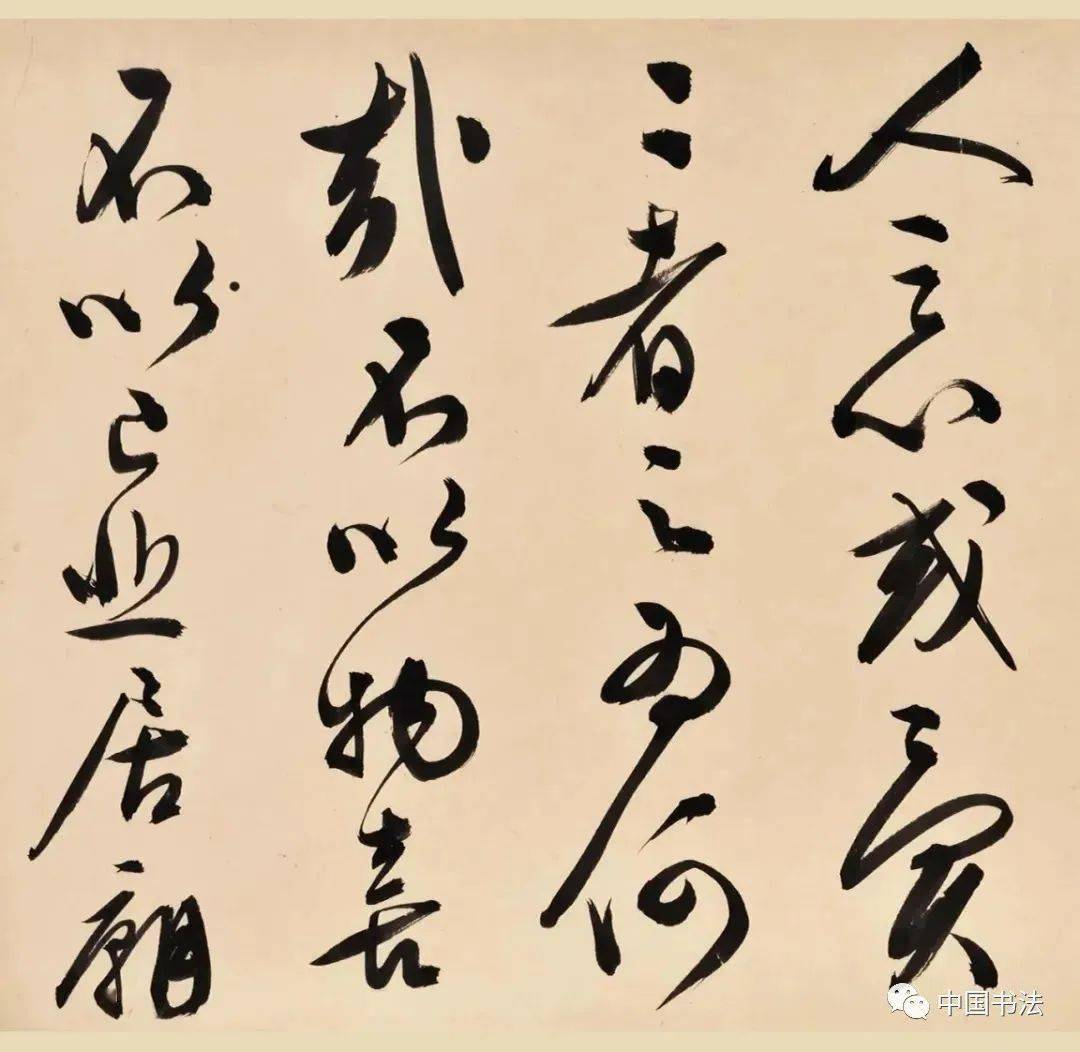 人之心或異
二者之為何
哉不以物喜
不以己悲居廟
中国书法